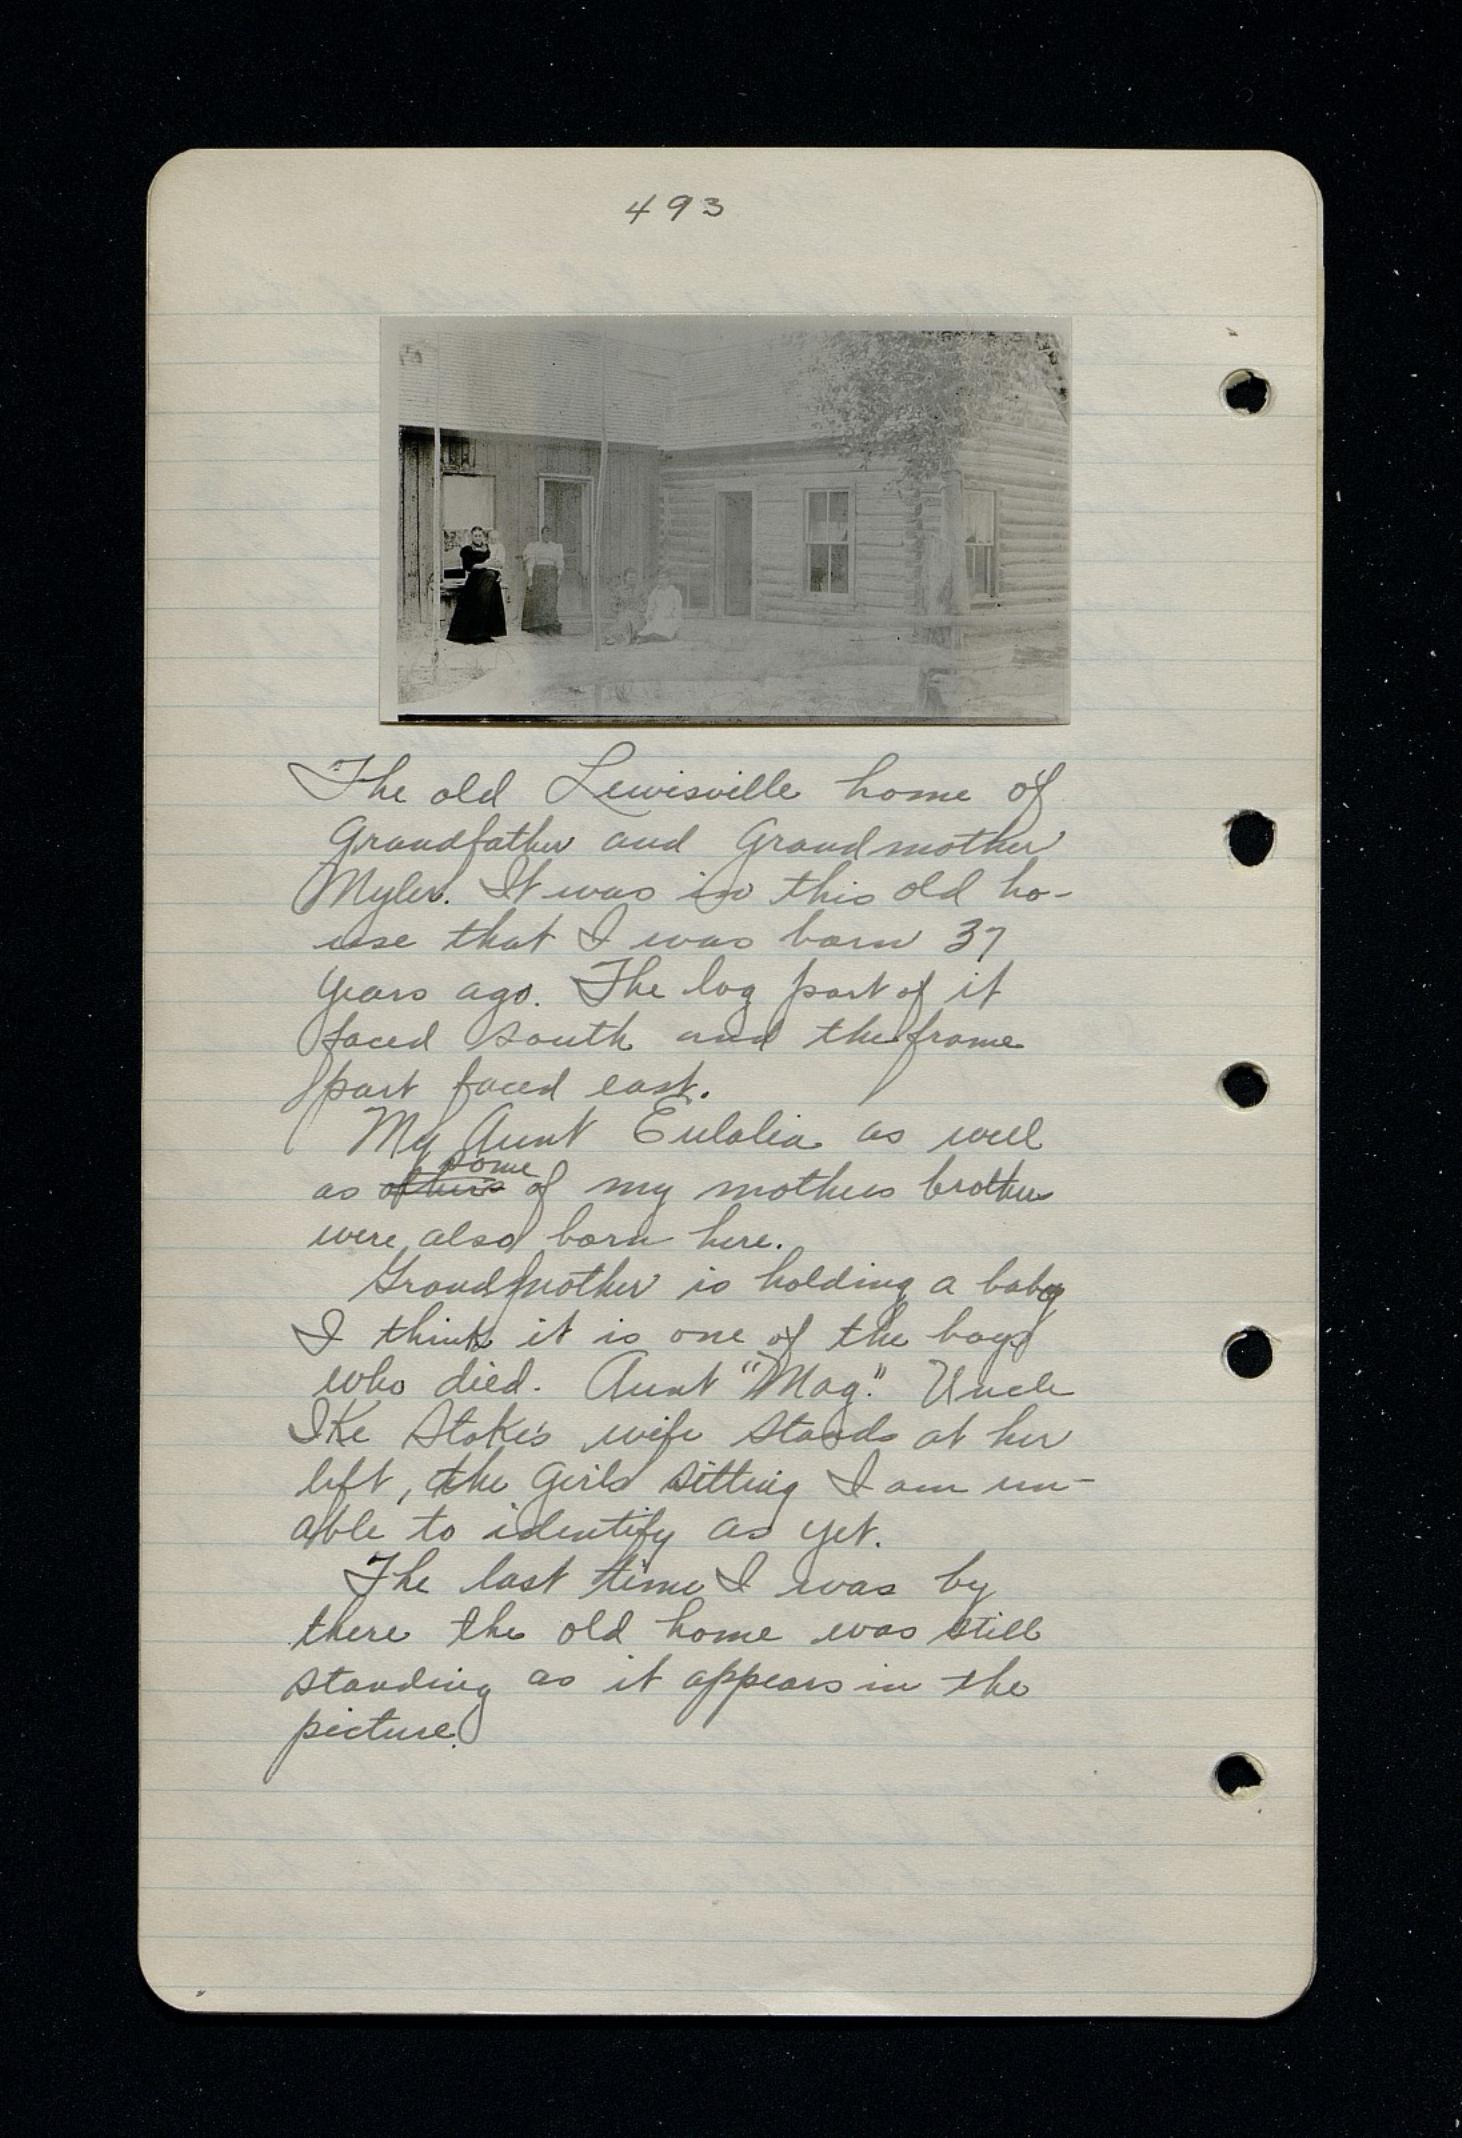 493
The old Lewisville home of
Grandfather and Grandmother
Myler. It was in this old ho-
use that I was born 37
years ago. The log part of it
faced south and the frame
part faced east.
My Aunt Eulalia as well
as others some of my mothers brothers
were also born here.
Grandmother is holding a baby
I think it is one of the boys
who died. Aunt "Mag." Uncle
Ike Stoke's wife stands at her
left, the girls sitting I am un-
able to identify as yet.
The last time I was by
there the old home was still
standing as it appears in the
picture.